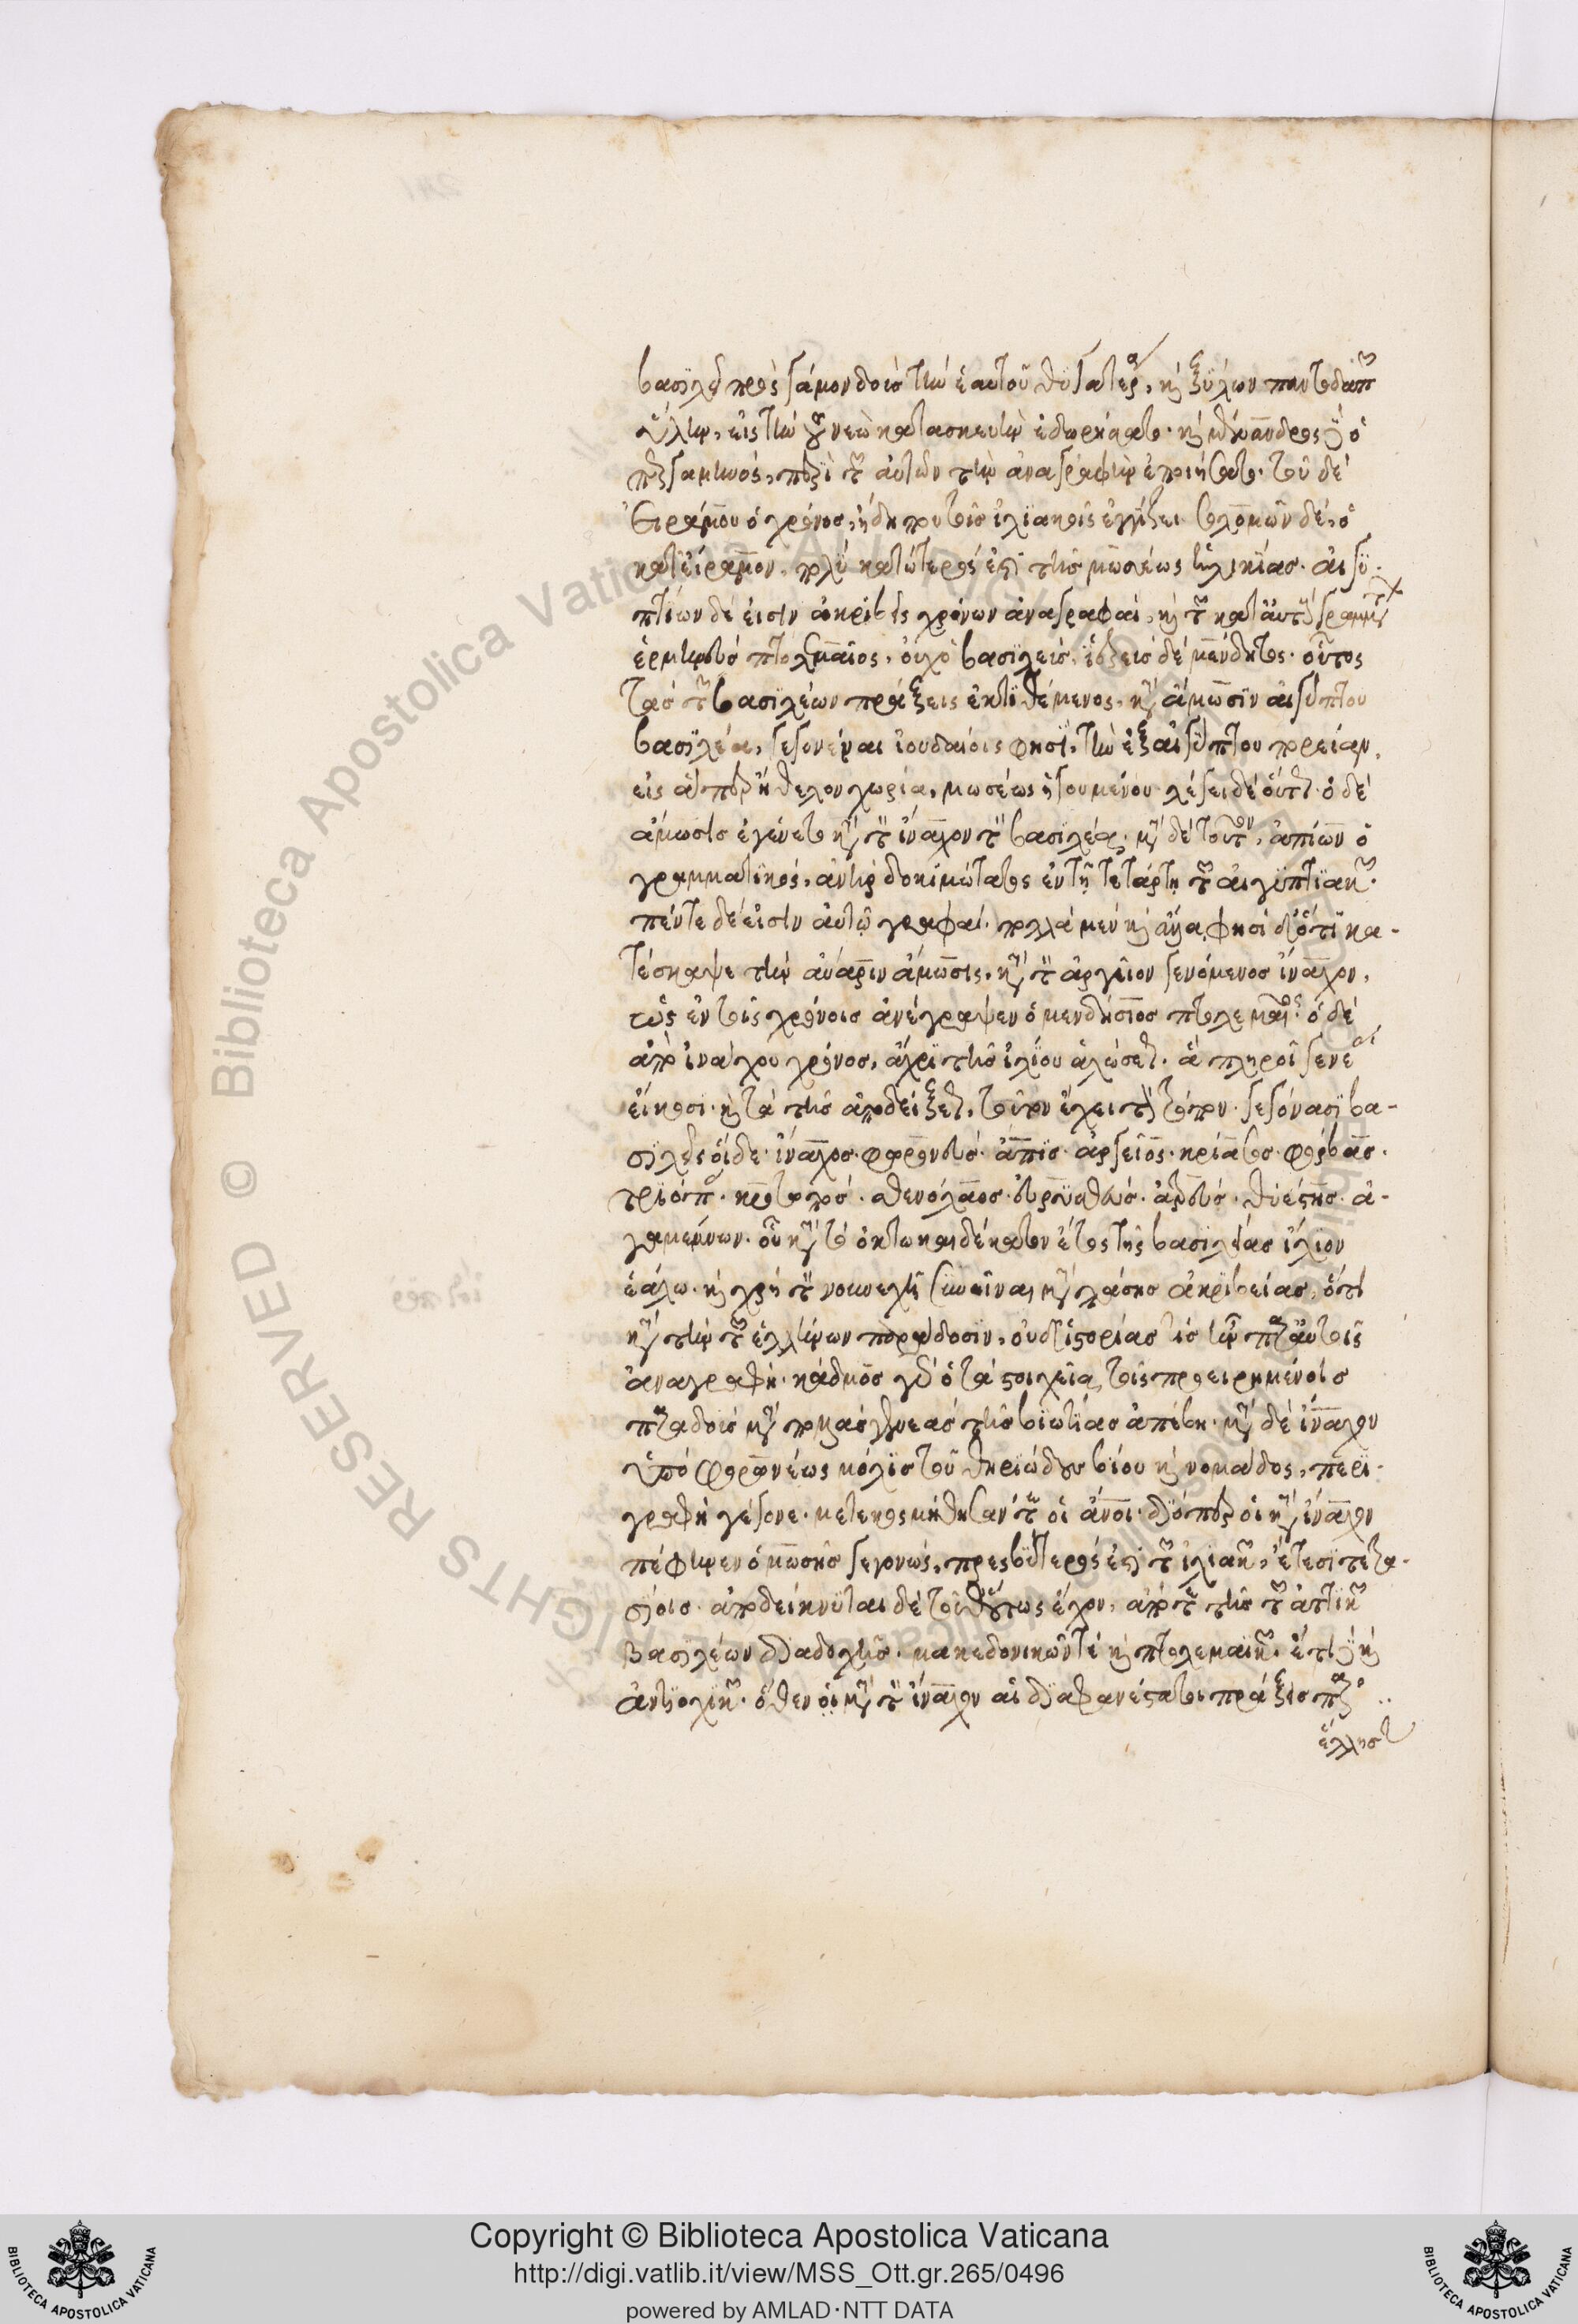 βασιλεῖ πρὸς γάμον δοὺς τὴν ἑαυτοῦ θυγατέρα, καὶ ξύλων παντοδαπῶν
ὕλην, εἰς τὴν τοῦ νεὼ κατασκευὴν ἐδωρήσατο. καὶ μένανδρος δὲ ὁ
περγαμηνὸς, περὶ τῶν αὐτῶν τὴν ἀναγραφὴν ἐποιήσατο. τοῦ δὲ
χειράμου ὁ χρόνος, ἤδη που τοῖς ἰλιακοῖς ἐγγίζει. σολομῶν δὲ, ὁ
κατὰ χείραμον, πολὺ κατώτερός ἐστι τῆς μωσέως ἡλικίας. αἰγυ-
πτίων δέ εἰσιν ἀκριβεῖς χρόνων ἀναγραφαὶ, καὶ τῶν κατ' αὐτοὺς γραμμάτων
ἑρμηνεὺς πτολεμαῖος, οὐχ ὁ βασιλεὺς, ἱερεὺς δὲ μένδητος. οὗτος
τὰς τῶν βασιλέων πράξεις ἐκτιθέμενος, κατὰ ἄμωσιν αἰγύπτου
βασιλέα, γεγονέναι ἰουδαίοις φησὶ, τὴν ἐξ αἰγύπτου πορείαν,
εἰς ἅπερ ἤθελον χωρία, μωσέως ἡγουμένου. λέγει δὲ οὕτως. ὁ δὲ
ἄμωσις ἐγένετο κατὰ τὸν ἴναχον τὸν βασιλέα. μετὰ δὲ τοῦτον, ἀπίων ὁ
γραμματικὸς, ἀνὴρ δοκιμώτατος ἐν τῇ τετάρτῃ τῶν αἰγυπτιακῶν.
πέντε δέ εἰσιν αὐτῷ γραφαί. πολλὰ μὲν καὶ ἄλλα, φησὶ δὲ ὅτι κα-
τέσκαψε τὴν αὔαριν ἄμωσις, κατὰ τὸν ἀργεῖον γενόμενος ἴναχον,
ὡς ἐν τοῖς χρόνοις ἀνέγραψεν ὁ μενδήσιος πτολεμαῖος. ὁ δὲ
ἀπὸ ἰνάχου χρόνος, ἄχρι τῆς ἰλίου ἁλώσεως. ἀποπληροῖ γενεὰς
εἴκοσι. καὶ τὰ τῆς ἀποδείξεως, τοῦτον ἔχει τὸν τρόπον. γεγόνασι βα-
σιλεῖς οἵδε. ἴναχος. φορωνεύς. ἄπις. ἀργεῖος. κρίασος. φόρβας.
τριόπας. κρότωπος. σθενέλαος. δαναός. λυγκεύς.
γαμέμνων. οὗ κατὰ τὸ ὀκτωκαιδέκατον ἔτος τῆς βασιλείας ἴλιον
ἑάλω. καὶ χρὴ τὸν νουνεχῆ συνεῖναι μετὰ πάσης ἀκριβείας, ὅτι
κατὰ τὴν τῶν ἑλλήνων παράδοσιν, οὐδ' ἱστορίας τις ἦν παρ' αὐτοῖς
ἀναγραφή. κάδμος γὰρ ὁ τὰ στοιχεῖα τοῖς προειρημένοις
παραδοὺς μετὰ πολλὰς γενεὰς τῆς βοιωτίας ἐπέβη. μετὰ δὲ ἴναχον
ὑπὸ φορωνέως μόλις τοῦ θηριώδους βίου καὶ νομάδος, περι-
γραφὴ γέγονε. μετεκοσμήθησάν τε οἱ ἄνθρωποι. διόπερ εἰ κατὰ ἴναχον
πέφηνεν ὁ μωσῆς γεγονὼς, πρεσβύτερός ἐστι τῶν ἰλιακῶν, ἔτεσι τετρα-
σίοις. ἀποδείκνυται δὲ τοῦθ' οὕτως ἔχον, ἀπό τε τῆς τῶν ἀττικῶν
βασιλέων διαδοχῆς. μακεδονικῶν τὲ καὶ πτολεμαϊκῶν. ἔτι δὲ καὶ
ἀντιοχικῶν. ὅθεν εἰ μετὰ τὸν ἴναχον αἱ διαφανέσταται πράξεις παρ'
ἕλλησι